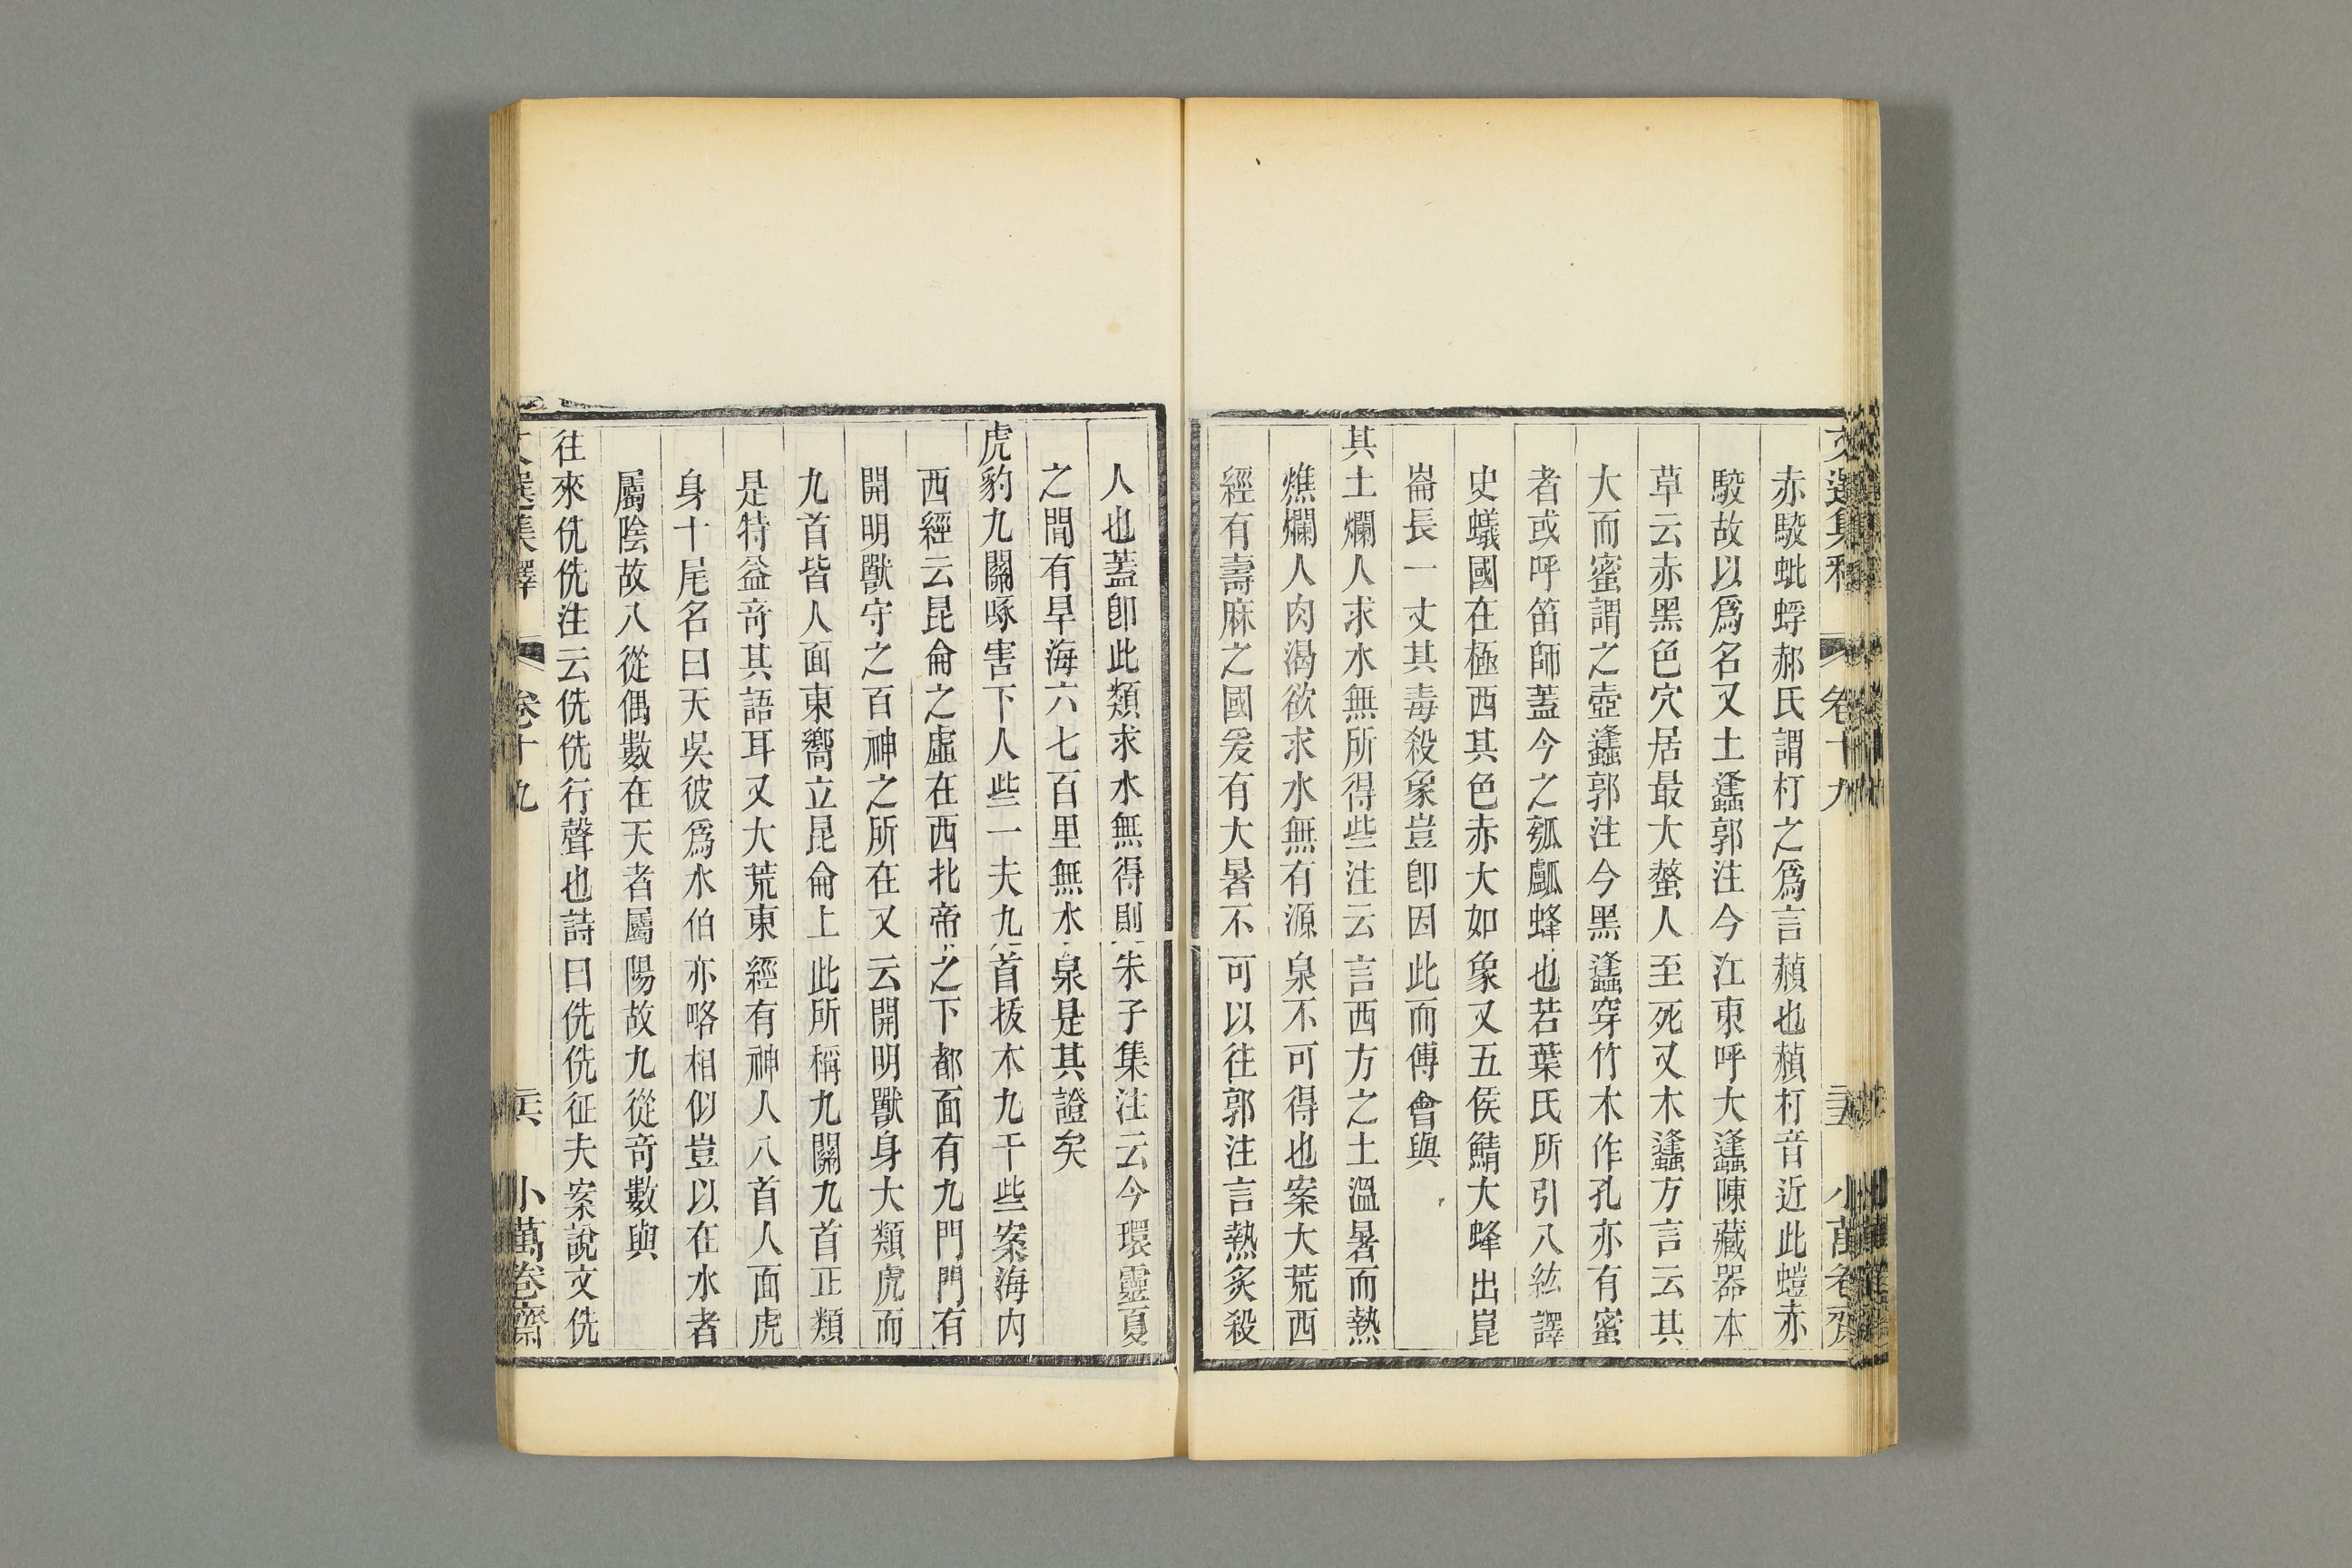 文選集釋 卷十九 三五 小萬卷齋
赤駮蚍蜉郝氏謂朾之爲言赬也赬朾音近此螘赤
駮故以爲名又土蠭郭注今江東呼大蠭陳藏器本
草云赤黑色穴居最大螫人至死又木蠭方言云其
大而蜜謂之壺蠭郭注今黑蠭穿竹木作孔亦有蜜
者或呼笛師蓋今之瓠瓤蜂也若葉氏所引八紘譯
史蟻國在極西其色赤大如象又五侯鯖大蜂出崑
崙長一丈其毒殺象豈卽因此而傅會與
其土爛人求水無所得些注云言西方之土溫暑而熱
燋爛人肉渴欲求水無有源泉不可得也案大荒西
經有壽麻之國爰有大暑不可以往郭注言熱炙殺
人也蓋卽此類求水無得則朱子集注云今環靈夏
之間有旱海六七百里無水泉是其證矣
虎豹九關啄害下人些一夫九首拔木九千些案海內
西經云昆侖之虛在西北帝之下都面有九門門有
開明獸守之百神之所在又云開明獸身大類虎而
九首皆人面東嚮立昆侖上此所稱九關九首正類
是特益奇其語耳又大荒東經有神人八首人面虎
身十尾名曰天吳彼爲水伯亦略相似豈以在水者
屬陰故八從偶數在天者屬陽故九從奇數與
往來侁侁注云侁侁行聲也詩曰侁侁征夫案說文侁
文選集釋 卷十九 三六 小萬卷齋